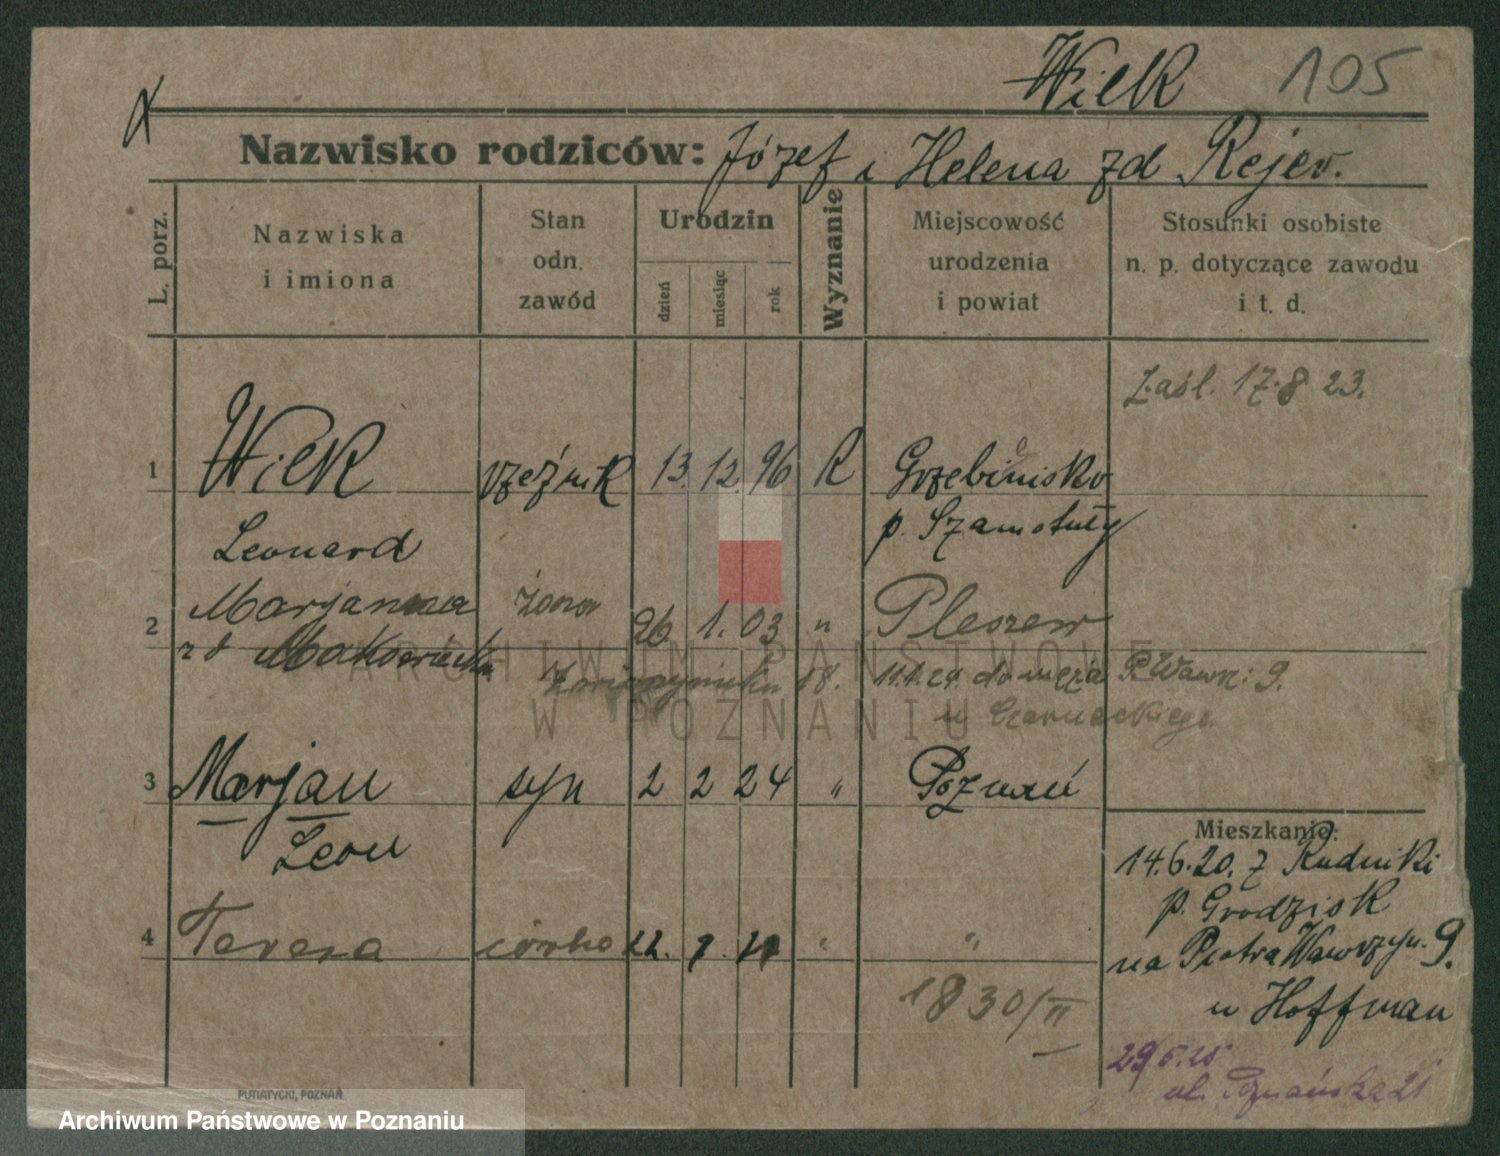 Wielk 105
Nazwisko rodziców: Józef i Helena zd Rejer.
L. porz.
Nazwiska
i imiona
Stan
odn.
zawód
Urodzin
dzień
miesiąc
rok
Wyznanie
Miejscowość
urodzenia
i powiat
Stosunki osobiste
n. p. dotyczące zawodu
i t. d.
Zaśl. 17.8 23.
1 Wielk rzeźnik 13. 12. 96 R Grzebinisko
Leonard p. Szamotuły
2 Marjanna żona 26 1. 03 " Pleszew
z d
18. 11.1.24. do męża P. Wawrz: 9.
u Czarneckiego
ARCHIWUM PAŃSTWOWE
W POZNANIU
3 Marjan syn 2 2 24 " Poznań
Leon
Mieszkanie:
14.6.20. z Rudniki
p. Grodzisk
4 Teresa córka 22. " "
na Piotra Wawrzyn. 9.
1830/II
u Hoffman
29/5.25
ul. Poznańska 21
PUTIATYCKI, POZNAŃ
Archiwum Państwowe w Poznaniu